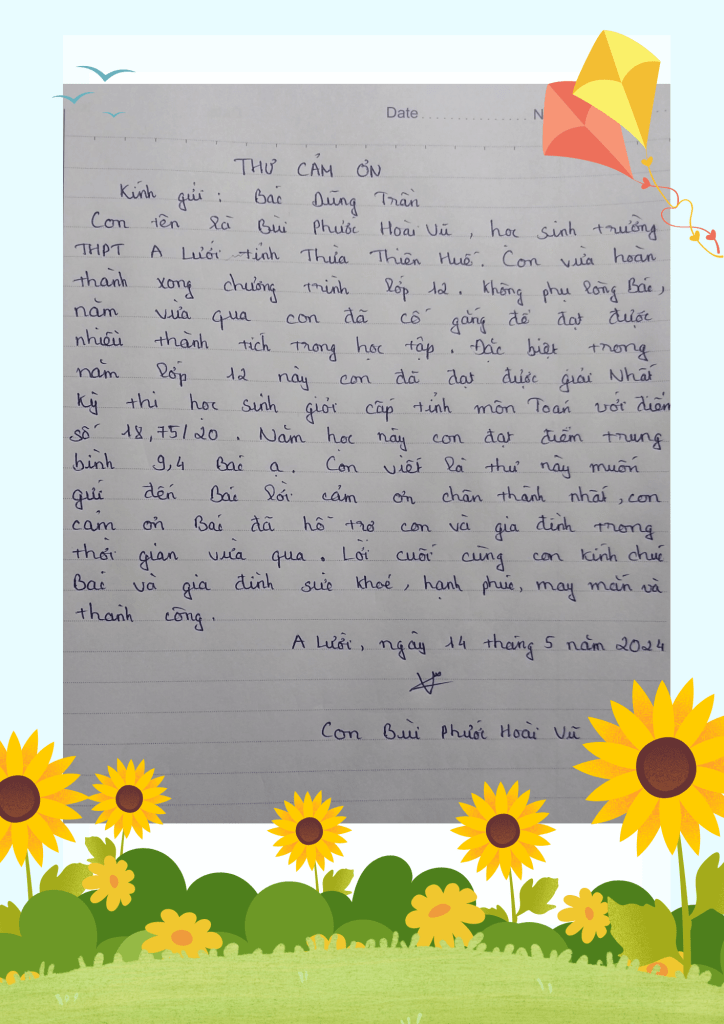 Date
N
THƯ CẢM ƠN
Kính gửi : Bác Dũng Trần
Con tên là Bùi Phước Hoài Vũ , học sinh trường
THPT A Lưới tỉnh Thừa Thiên Huế. Con vừa hoàn
thành xong chương trình lớp 12 . Không phụ lòng Bác,
năm vừa qua con đã cố gắng để đạt được
nhiều thành tích trong học tập . Đặc biệt trong
năm lớp 12 này con đã đạt được giải Nhất
Kỳ thi học sinh giỏi cấp tỉnh môn Toán với điểm
số 18,75/20 . Năm học này con đạt điểm trung
bình 9,4 Bác ạ. Con viết lá thư này muốn
gửi đến Bác lời cảm ơn chân thành nhất, con
cảm ơn Bác đã hỗ trợ con và gia đình trong
thời gian vừa qua . Lời cuối cùng con kính chúc
Bác và gia đình sức khoẻ, hạnh phúc, may mắn và
thành công.
A Lưới, ngày 14 tháng 5 năm 2024
Con Bùi Phước Hoài Vũ